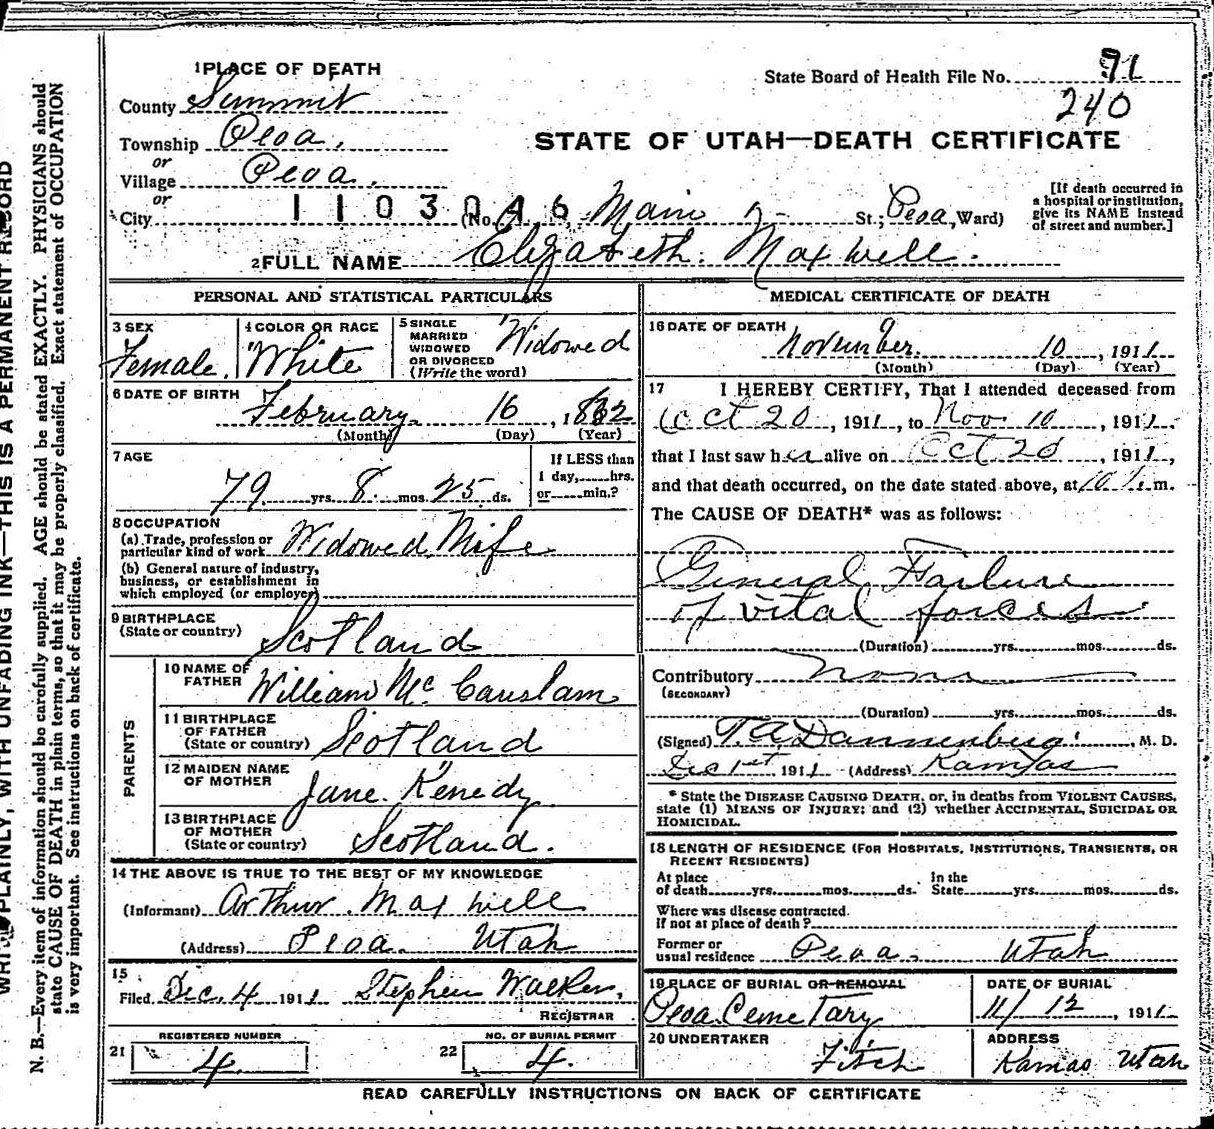 1 PLACE OF DEATH
County Summit
Township Peoa.
or
Village Peoa.
or
City 1103046 (No. Main St.; Peoa, Ward)
State Board of Health File No. 91
240
STATE OF UTAH—DEATH CERTIFICATE
[If death occurred in
a hospital or institution,
give its NAME instead
of street and number.]
2 FULL NAME Elizabeth. Maxwell.
PERSONAL AND STATISTICAL PARTICULARS
3 SEX
Female.
4 COLOR OR RACE
White
5 SINGLE
MARRIED
WIDOWED
OR DIVORCED
(Write the word)
Widowed
6 DATE OF BIRTH
February. 16, 1832
(Month) (Day) (Year)
7 AGE
79 yrs. 8 mos. 25 ds.
If LESS than
1 day,......hrs.
or......min.?
8 OCCUPATION
(a) Trade, profession or
particular kind of work Widowed Wife
(b) General nature of industry,
business, or establishment in
which employed (or employer)
9 BIRTHPLACE
(State or country) Scotland
PARENTS
10 NAME OF
FATHER William Mc Causlam
11 BIRTHPLACE
OF FATHER
(State or country) Scotland
12 MAIDEN NAME
OF MOTHER Jane. Kenedy
13 BIRTHPLACE
OF MOTHER
(State or country) Scotland.
14 THE ABOVE IS TRUE TO THE BEST OF MY KNOWLEDGE
(Informant) Arthur. Maxwell
(Address) Peoa. Utah
15
Filed Dec. 4 1911 Stephen Walker,
REGISTRAR
REGISTERED NUMBER
21 4.
NO. OF BURIAL PERMIT
22 4.
MEDICAL CERTIFICATE OF DEATH
16 DATE OF DEATH
November. 10, 1911
(Month) (Day) (Year)
17 I HEREBY CERTIFY, That I attended deceased from
Oct 20, 1911, to Nov. 10, 1911.
that I last saw her alive on Oct 20, 1911,
and that death occurred, on the date stated above, at 10 m.
The CAUSE OF DEATH* was as follows:
General Failure
of vital forces
(Duration) yrs. mos. ds.
Contributory None
(SECONDARY)
(Duration) yrs. mos. ds.
(Signed) T. A. Dannenberg, M. D.
Dec 1st 1911 (Address) Kamas
* State the DISEASE CAUSING DEATH, or, in deaths from VIOLENT CAUSES,
state (1) MEANS OF INJURY; and (2) whether ACCIDENTAL, SUICIDAL OR
HOMICIDAL.
18 LENGTH OF RESIDENCE (FOR HOSPITALS, INSTITUTIONS, TRANSIENTS, OR
RECENT RESIDENTS)
At place
of death yrs. mos. ds.
In the
State yrs. mos. ds.
Where was disease contracted.
If not at place of death?
Former or
usual residence Peoa. Utah
19 PLACE OF BURIAL OR REMOVAL
Peoa. Cemetary
DATE OF BURIAL
11/12, 1911
20 UNDERTAKER
Fitch
ADDRESS
Kamas Utah
READ CAREFULLY INSTRUCTIONS ON BACK OF CERTIFICATE
PLAINLY, WITH UNFADING INK—THIS IS A PERMANENT RECORD
N. B.—Every item of information should be carefully supplied. AGE should be stated EXACTLY. PHYSICIANS should
state CAUSE OF DEATH in plain terms, so that it may be properly classified. Exact statement of OCCUPATION
is very important. See instructions on back of certificate.